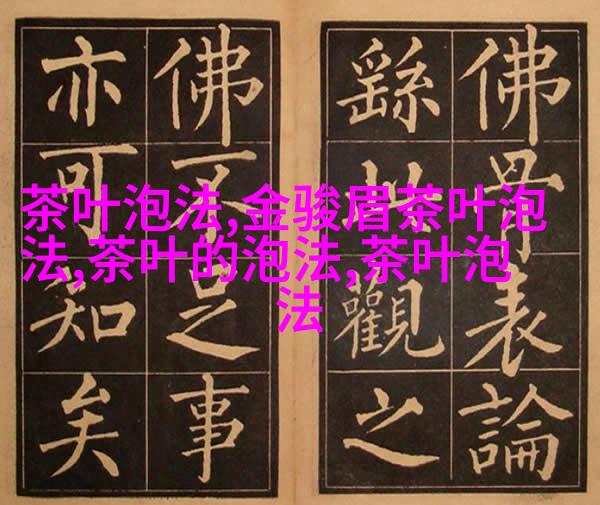 茶叶泡法,金骏眉茶叶泡
法,茶叶的泡法,茶叶泡
法
佛骨表論
繇此觀之
佛不足事
亦可知矣